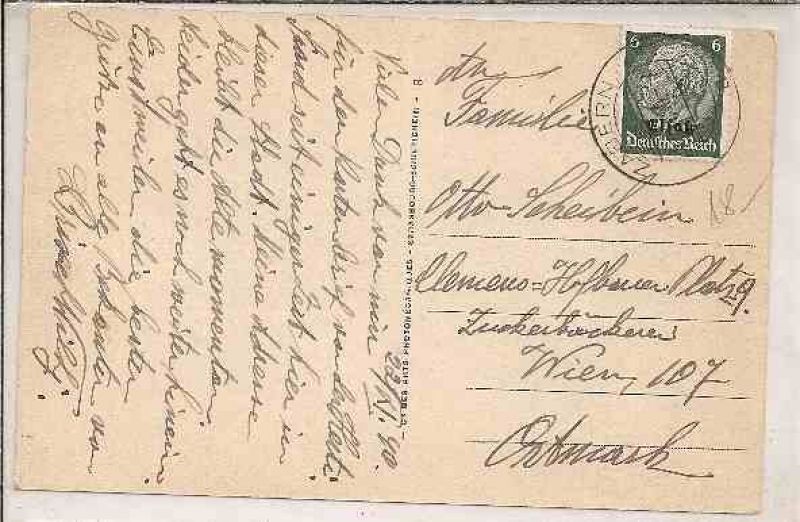 29/XI. 40.
Vielen Dank von mir
für den Kartenbrief von der Herti
Sind seit einiger Zeit hier in
dieser Stadt. Meine Adresse
bleibt die alte momentan
leider geht es noch weiter hinein
die besten
Grüße an alle Bekannten von
Willi
CIE DES ARTS PHOTOMÉCANIQUES - STRASBOURG-SCHILTIGHEIM - 8
6 6
Elsaß
Deutsches Reich
ZABERN
An
Familie
Otto Scheibein
Clemens=Hofbauer Platz 9.
Zuckerbäckerei
Wien, 107
Ostmark
18-